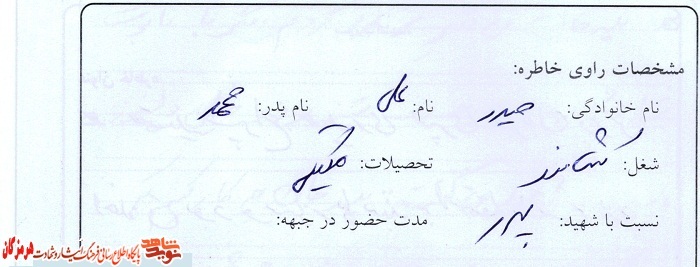 مشخصات راوی خاطره:
نام خانوادگی: حیدر نام: علی نام پدر: محمد
شغل: کشاورز تحصیلات:
نسبت با شهید: پدر مدت حضور در جبهه:
نوید شاهد پایگاه اطلاع رسانی فرهنگ ایثار و شهادت هرمزگان